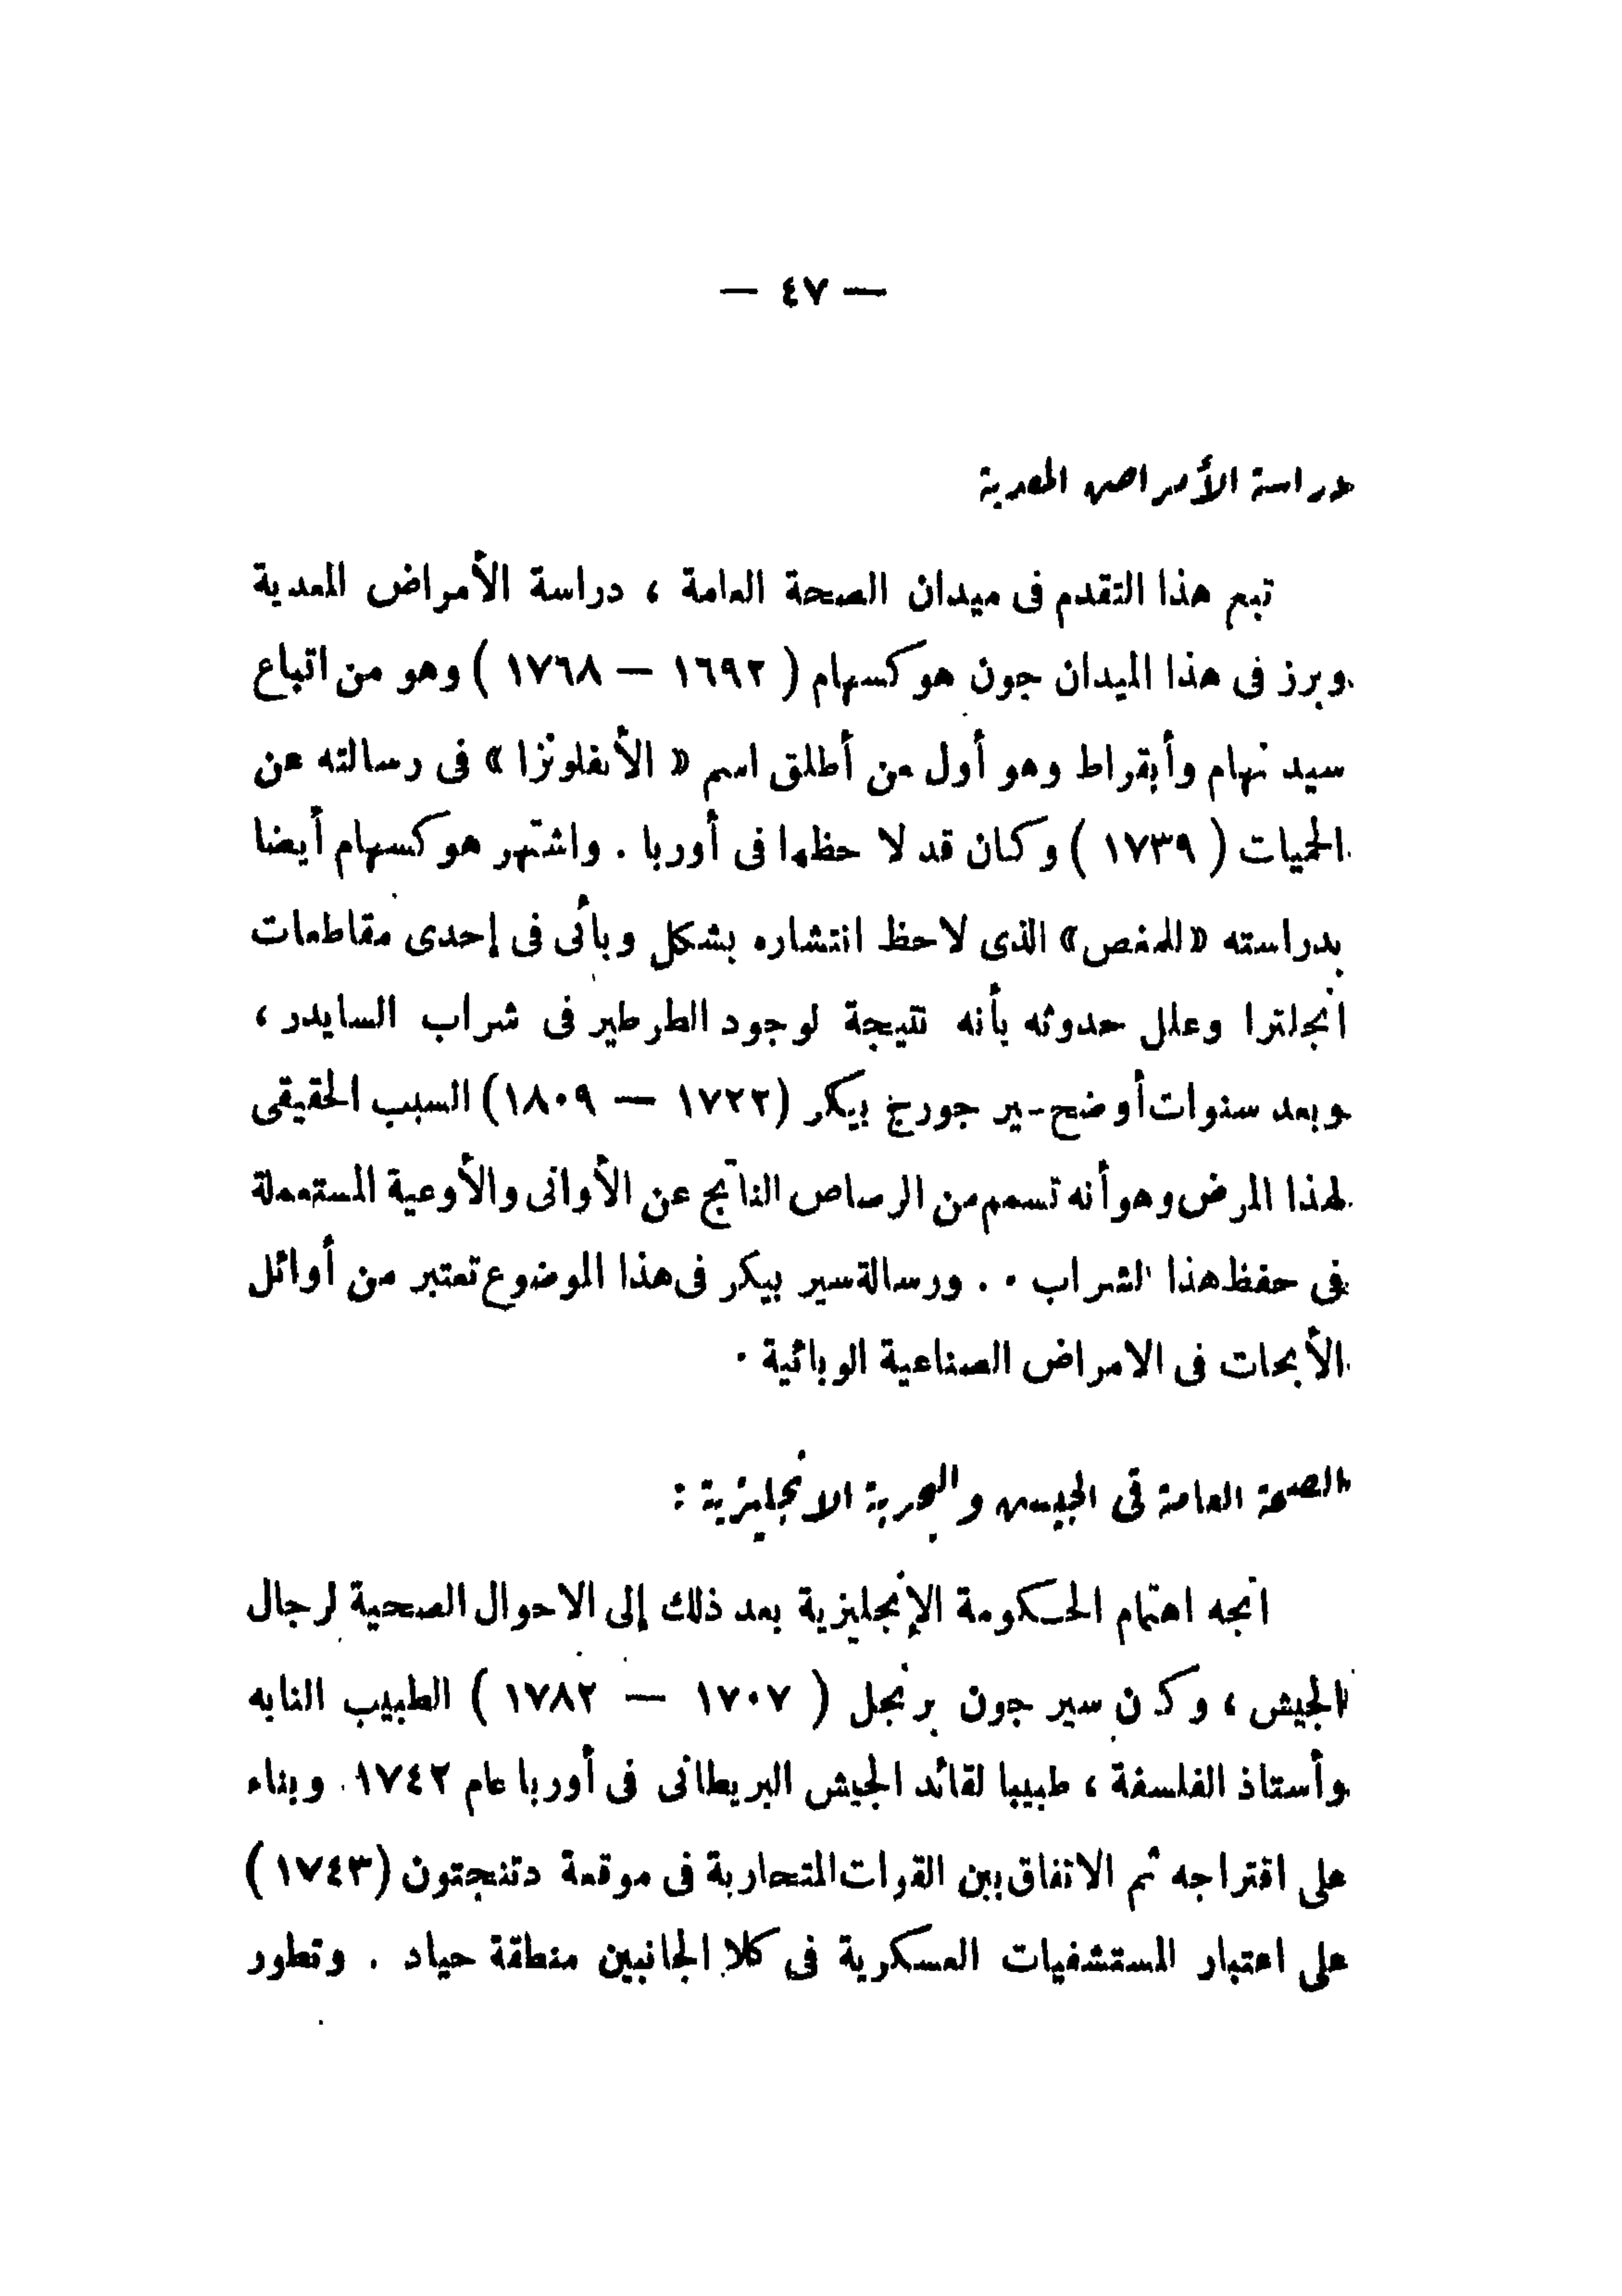 — ٤٧ —
دراسة الأمراض المعدية
تبع هذا التقدم فى ميدان الصحة العامة ، دراسة الأمراض المعدية
وبرز فى هذا الميدان جون هوكسهام ( ١٦٩٢ — ١٧٦٨ ) وهو من اتباع
سيد نهام وأبقراط وهو أول من أطلق اسم « الأنفلونزا » فى رسالته عن
الحميات ( ١٧٣٩ ) وكان قد لا حظها فى أوربا . واشتهر هوكسهام أيضا
بدراسته «للمغص» الذى لاحظ انتشاره بشكل وبأئى فى إحدى مقاطعات
انجلترا وعلل حدوثه بأنه نتيجة لوجود الطرطير فى شراب السايدر ،
وبعد سنوات أوضح سير جورج بيكر (١٧٢٢ — ١٨٠٩) السبب الحقيقى
لهذا المرض وهو أنه تسمم من الرصاص الناتج عن الأوانى والأوعية المستعملة
فى حفظ هذا الشراب . . ورسالة سير بيكر فى هذا الموضوع تعتبر من أوائل
الأبحاث فى الامراض الصناعية الوبائية .
الصحة العامة فى الجيش والبحرية الانجليزية :
اتجه اهتمام الحكومة الإنجليزية بعد ذلك إلى الاحوال الصحية لرجال
الجيش ، وكان سير جون برنجل ( ١٧٠٧ — ١٧٨٢ ) الطبيب النابه
وأستاذ الفلسفة ، طبيبا لقائد الجيش البريطانى فى أوربا عام ١٧٤٢. وبناء
على اقتراحه تم الاتفاق بين القوات المتحاربة فى موقعة دتنجتون (١٧٤٣)
على اعتبار المستشفيات العسكرية فى كلا الجانبين منطقة حياد . وتطور